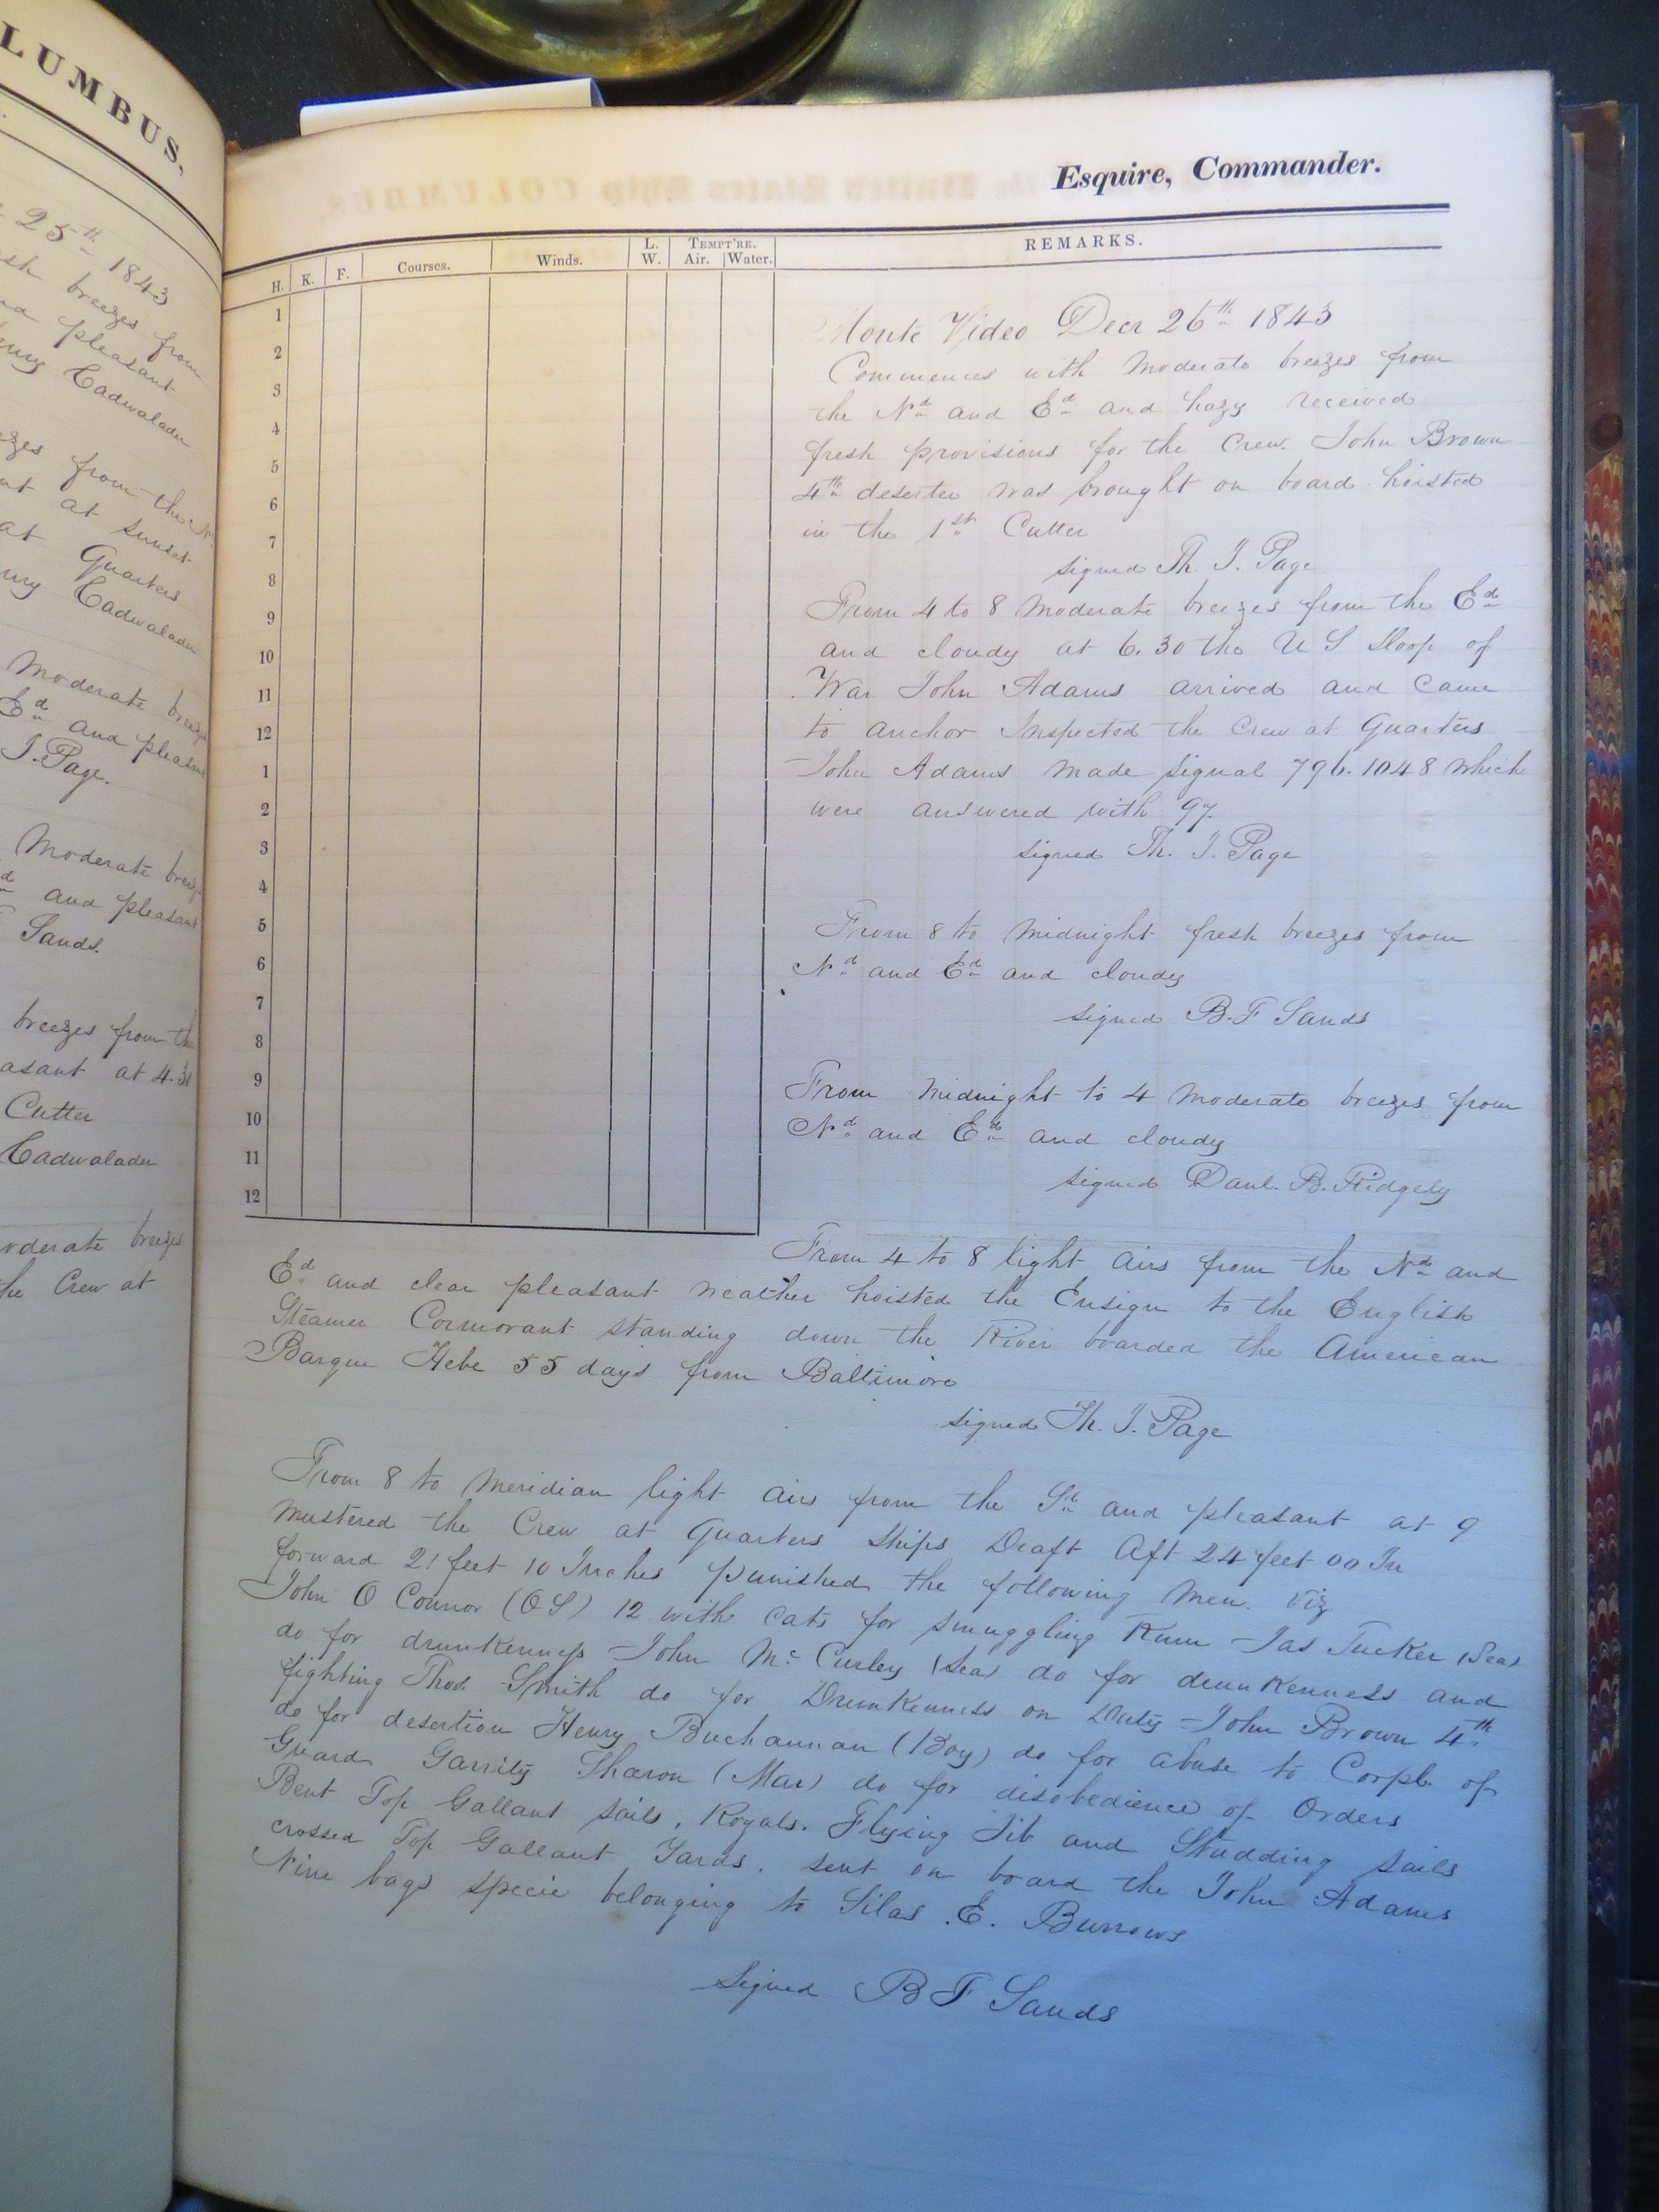 LUMBUS.
25th 1843
breezes from
pleasant
Cadwalader
from the N
at sunset
at Quarters
Cadwalader
Moderate breezes
Ed and pleasant
J. Page.
Moderate breezes
and pleasant
Sands.
breezes from the
asant at 4.30
Cutter
Cadwalader
oderate breezes
the Crew at
Esquire, Commander.
H. K. F. Courses. Winds. L. W. TEMPT'RE. Air. Water. REMARKS.
1
2
3
4
5
6
7
8
9
10
11
12
1
2
3
4
5
6
7
8
9
10
11
12
Monte Video Decr 26th 1843
Commences with Moderate breezes from
the Nd and Ed and hazy received
fresh provisions for the Crew. John Brown
4th deserter was brought on board hoisted
in the 1st Cutter
signed Th. J. Page
From 4 to 8 Moderate breezes from the Ed
and cloudy at 6.30 the U S Sloop of
War John Adams arrived and came
to anchor Inspected the Crew at Quarters
John Adams made signal 796. 1048 which
were answered with 97.
signed Th. J. Page
From 8 to Midnight fresh breezes from
Nd and Ed and cloudy
signed B. F Sands
From Midnight to 4 Moderate breezes from
Nd and Ed and cloudy
signed Danl. B. Ridgely
From 4 to 8 light airs from the Nd and
Ed and clear pleasant weather hoisted the Ensign to the English
Steamer Cormorant standing down the River boarded the American
Barque Hebe 55 days from Baltimore
signed Th. J. Page
From 8 to Meridian light airs from the Sd and pleasant at 9
mustered the Crew at Quarters Ships Draft Aft 24 feet 00 In
forward 21 feet 10 Inches punished the following Men. Viz
John O Connor (OS) 12 with cats for smuggling Rum - Jas Tucker (Sea)
do for drunkenness - John Mc Curley (Sea) do for drunkenness and
fighting Thos. Smith do for Drunkenness on Duty - John Brown 4th
do for desertion Henry Buchannan (Boy) do for abuse to Corpl. of
Guard Garrity Sharon (Mar) do for disobedience of Orders
Bent Top Gallant sails, Royals. Flying Jib and Studding sails
crossed Top Gallant Yards. sent on board the John Adams
Nine bags specie belonging to Silas. E. Burrows
Signed B F Sands